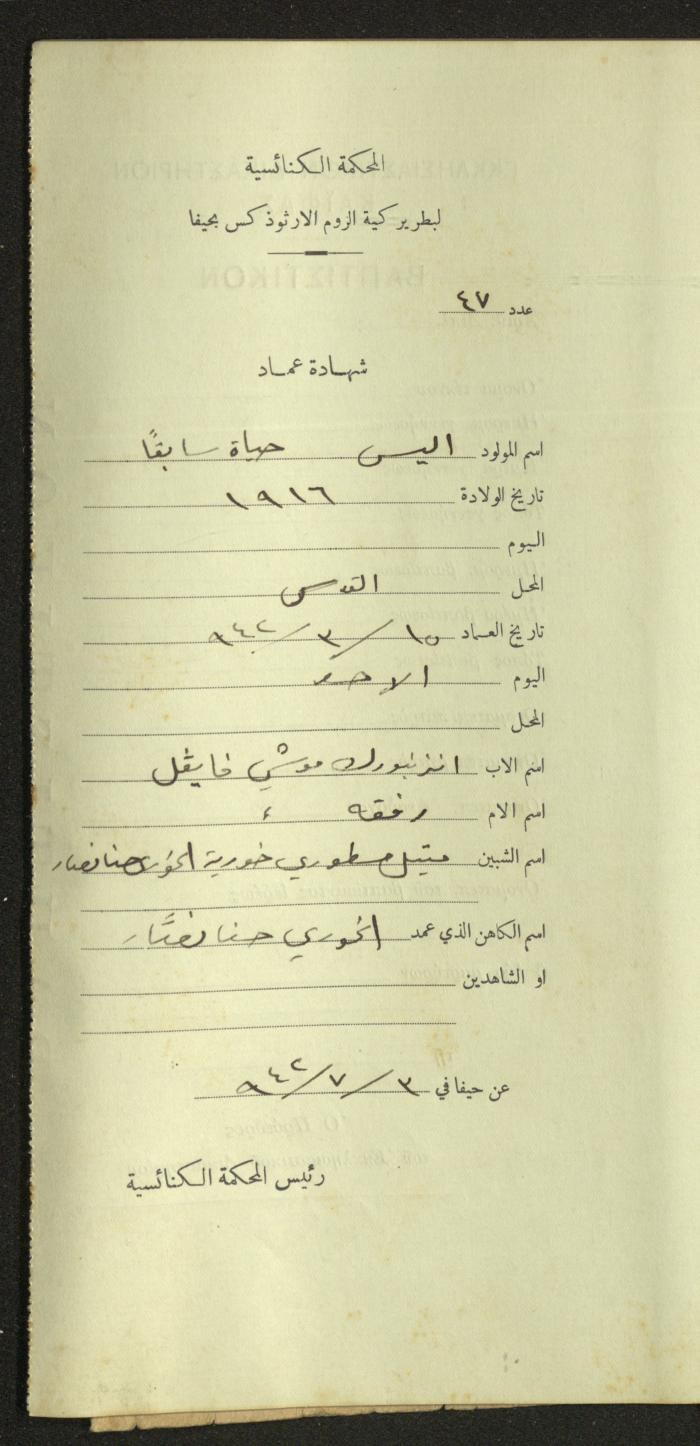 المحكمة الكنائسية
لبطريركية الروم الارثوذكس بحيفا
عدد ٤٧
شهادة عماد
اسم المولود اليس حياة سابقًا
تاريخ الولادة ١٩١٦
اليوم
المحل القدس
تاريخ العماد ١٥/٣/٩٤٢
اليوم الاحد
المحل
اسم الاب موشي فايڤل
اسم الام رفقه
اسم الشبين متيل خورية الخوري حنا نصار
اسم الكاهن الذي عمد الخوري حنا نصَّار
او الشاهدين
عن حيفا في ٣/٧/٩٤٢
رئيس المحكمة الكنائسية